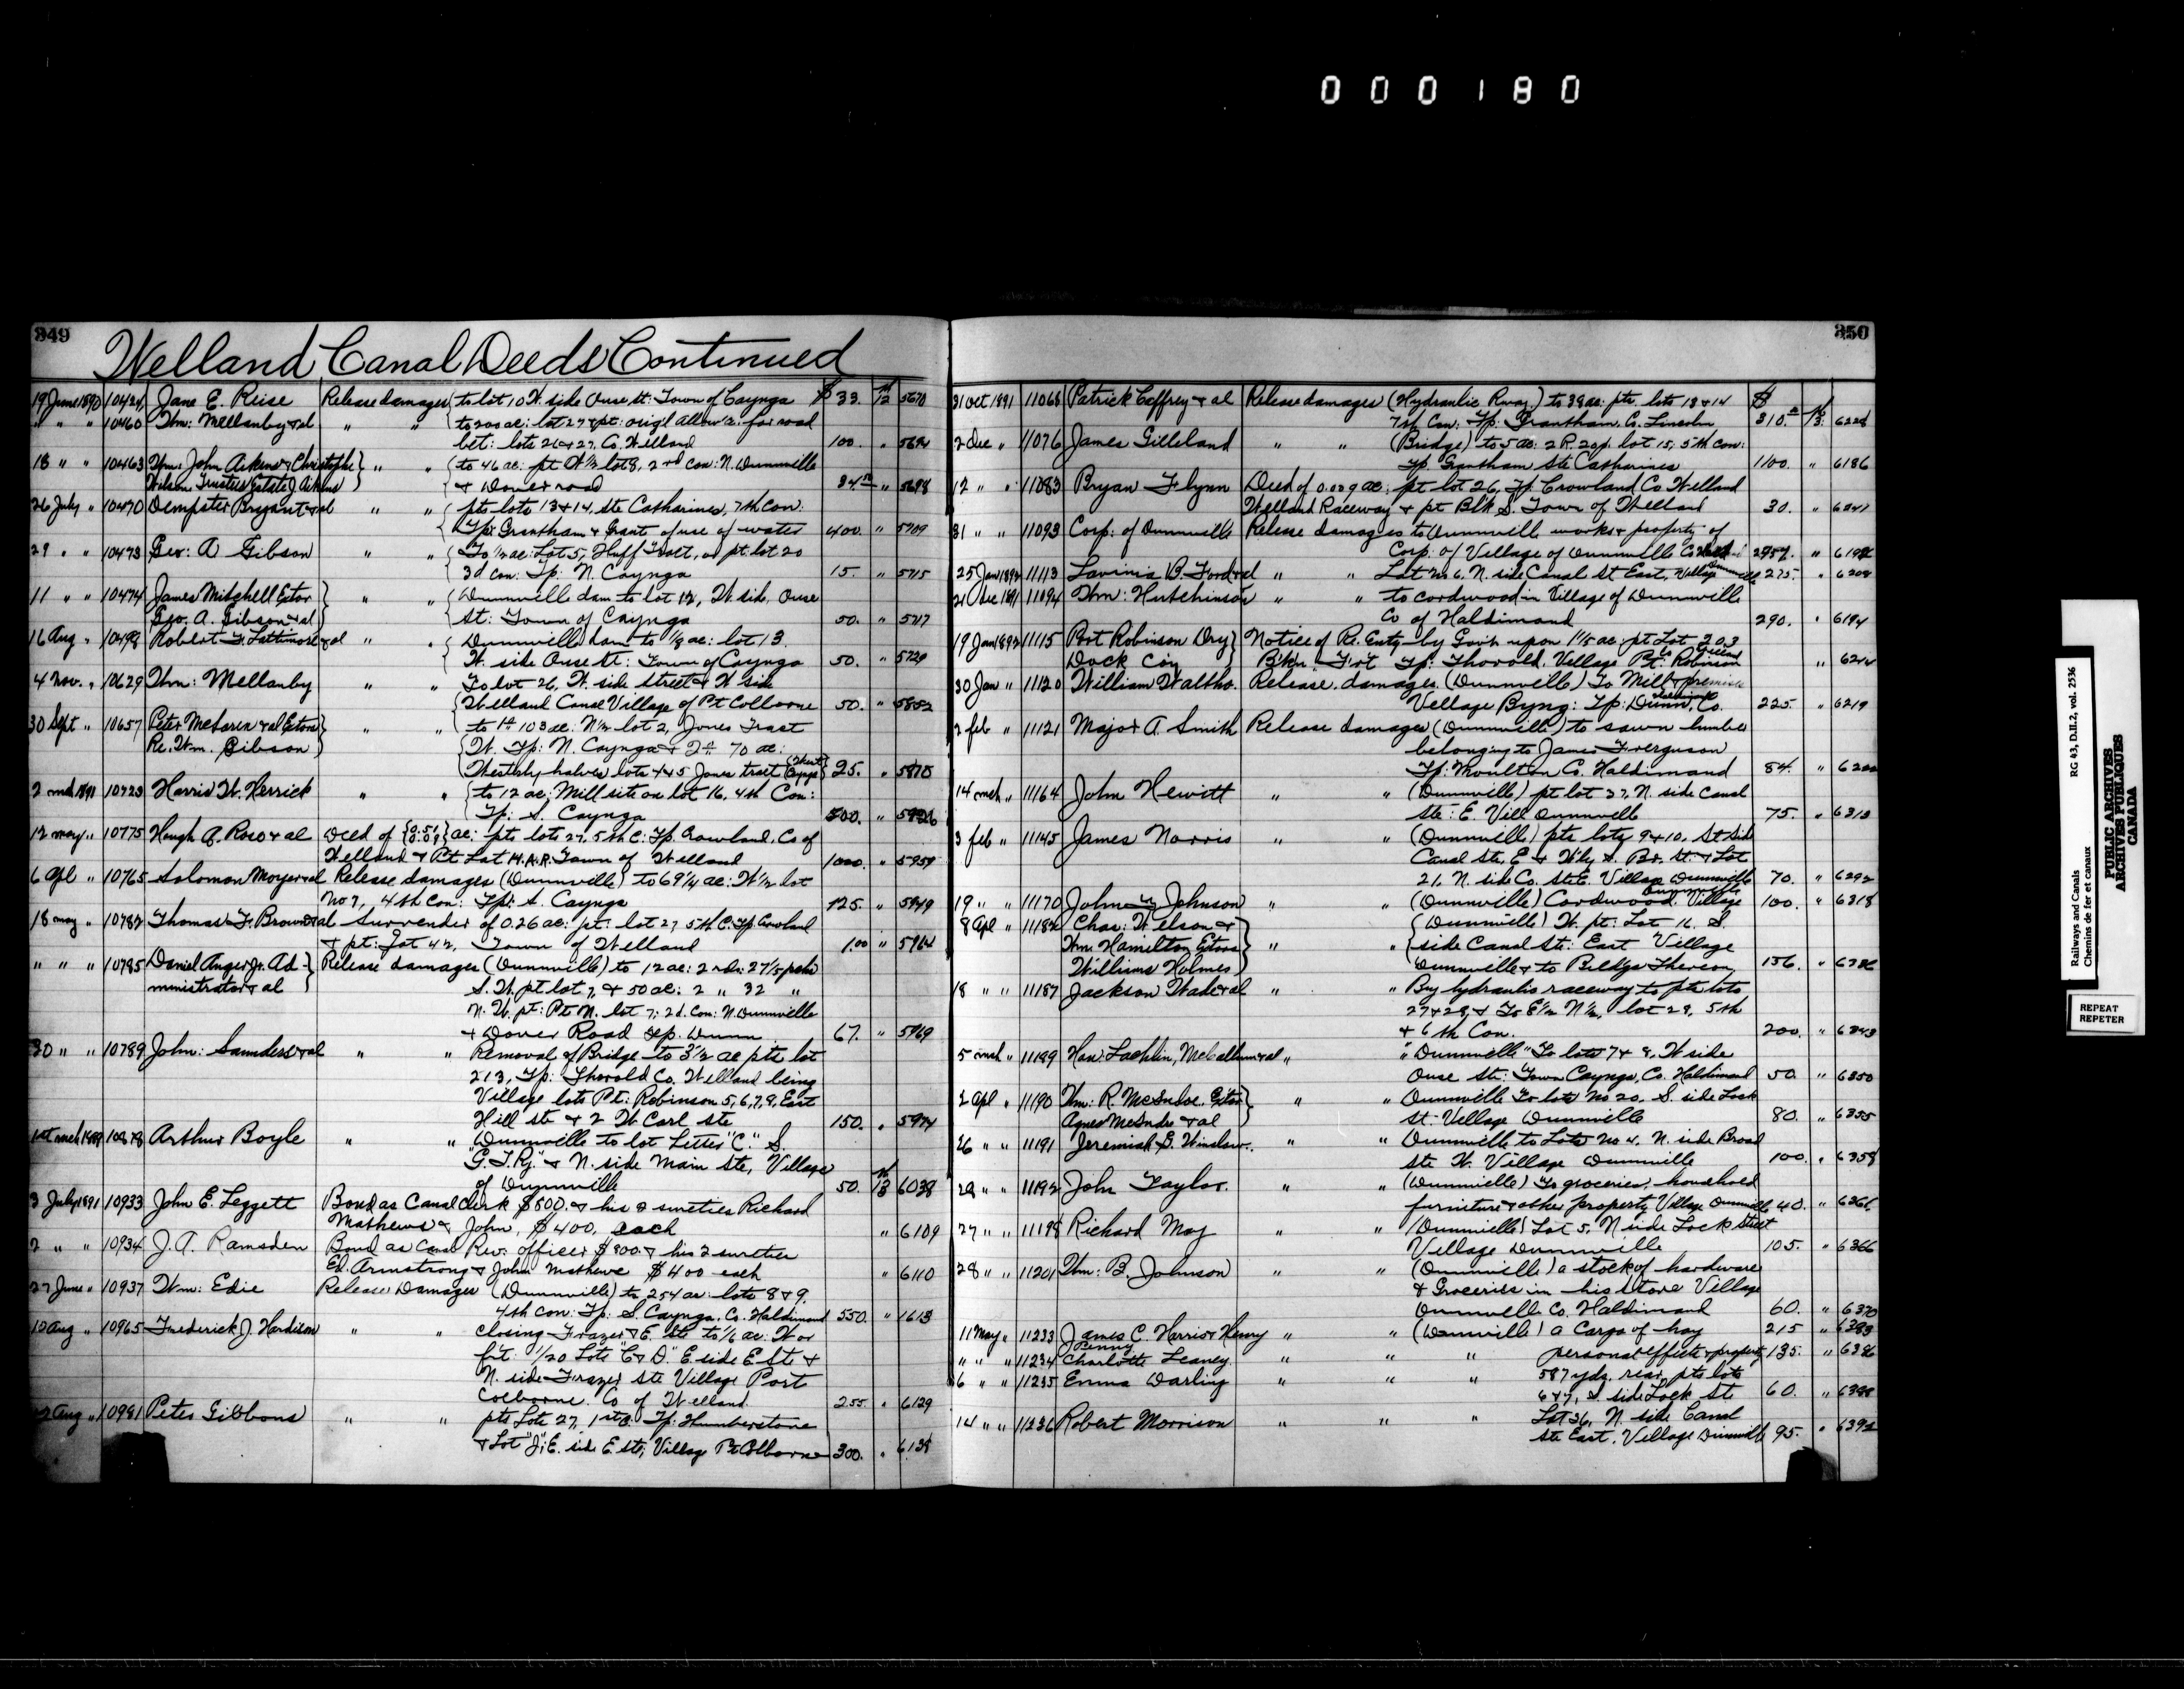 000180
349
Welland Canal Deeds Continued
19 June 1890 10424 Jane E. Reise Release damages { to lot 10 W. side Ouse st: Town of Cayuga $ 33. 12 5670
" " " 10460 Wm: Mellanby & al " " { to 200 ac: lot 27 & pt: origl allow'e: for road
bet: lots 26 & 27, Co. Welland 100. " 5694
18 " " 10463 Wm. John Aikens & Christopher } " " { to 46 ac: pt W½ lot 8, 2nd con: N. Dunnville
Wilson Trustees Estate J. Aikens } & Dover road 34. " 5698
26 July " 10470 Dempster Bryant & al " " { pts lots 13 & 14, Ste Catharines, 7th con:
Tp: Grantham & Grant of use of water 400. " 5709
29 " " 10473 Geo: A Gibson " " { To ½ ac: Lot 5, Huff Tract, or pt. lot 20
3d con: Tp: N. Cayuga 15. " 5715
11 " " 10474 James Mitchell Extor } " " { Dunnville dam to lot 12, W. side Ouse
Geo. A. Gibson & al } St: Town of Cayuga 50. " 5717
16 Aug " 10498 Robert F. Lattimore & al " " { Dunnville dam to 1/8 ac: lot 13.
W. side Ouse St: Town of Cayuga 50. " 5729
4 Nov. " 10629 Wm: Mellanby " " To lot 26, W. side street & W side
Welland Canal Village of Pt Colborne 50. " 5852
30 Sept " 10657 Peter McLaren & al Extors } " " { to 1st 103 ac: N½ lot 2, Jones Tract
Re. Wm. Gibson } W. Tp: N. Cayuga & 2nd 70 ac:
Westerly halves lots 4 & 5 Jones tract (West Cayuga) 25. " 5875
2 mch 1891 10723 Harris W. Herrick " " { to 12 ac: Mill site on lot 16, 4th Con:
Tp: S. Cayuga 500. " 5926
12 may " 10775 Hugh A. Rose & al Deed of ac: pts lots 27, 5th C: Tp. Crowland, Co of
Welland & Pt Lot M.A.R. Town of Welland 1000. " 5959
6 Apl " 10765 Solomon Moyer & al Release damages (Dunnville) to 69¼ ac: W½ lot
No 7, 4th Con: Tp: S. Cayuga 125. " 5949
18 may " 10782 Thomas F. Brown & al Surrender of 0.26 ac: pt: lot 27 5th C: Tp Crowland
& pt: Lot 42, Town of Welland 1.00 " 5964
" " " 10785 Daniel Anger Jr. Ad- } Release damages (Dunnville) to 12 ac: 2 rds: 27 1/5 pchs
ministrator & al } S. W. pt lot 7, & 50 ac: 2 " 32 "
N. W. pt: Pt N. lot 7: 2d. Con: N. Dunnville
& Dover Road Tp. Dunn 67. " 5969
30 " " 10789 John: Saunders & al " " Removal of Bridge to 3½ ac pts lot
213, Tp: Thorold Co. Welland being
Village lots Pt: Robinson 5, 6, 7, 9, East
Hill ste & 2 W Carl ste 150. " 5974
1st mch 10878 Arthur Boyle " " Dunnville to lot Letter "C" S.
"G. T. Ry." & N. side Main ste, Village
of Dunnville 50. 13 6038
3 July 1891 10933 John E. Leggett Bond as Canal Clerk $800. & his 2 sureties Richard
Mathews & John, $400. each " 6109
2 " " 10934 J. A. Ramsden Bond as Canal Rev. officer $800. & his 2 sureties
Ed. Armstrong & John Mathews $400 each " 6110
27 June " 10937 Wm: Edie Release Damages (Dunnville) to 254 ac: lots 8 & 9.
4th con: Tp: S. Cayuga, Co. Haldimand 550. " 1613
10 Aug " 10965 Frederick J. Hardison " " closing Frazer & E. St. to 1/6 ac: W or
frt: 1/20 Lots "C & D." E side E Ste &
N. side Frazer ste Village Port
Colborne. Co of Welland 255. " 6129
Aug " 10981 Peter Gibbons " " pts Lots 27, 1st C. Tp: Humberstone
& Lot "J", E. side E. ste, Village Pt Colborne 300. " 6138
350
31 Oct 1891 11068 Patrick Caffrey & al Release damages (Hydraulic Rway) to 38 ac: pts. lots 13 & 14 $
7th Con: Tp: Grantham, Co. Lincoln 310. 13 6228
2 Dec " 11076 James Gilleland " " (Bridge) to 5 ac: 2 R. 20 p. lot 15, 5th con:
Tp. Grantham Ste Catharines 1100. " 6186
12 " " 11083 Bryan Flynn Deed of 0.029 ac: pt lot 26, Tp. Crowland Co Welland
Welland Raceway & pt Bl'k S. Town of Welland 30. " 6241
31 " " 11093 Corp: of Dunnville Release damages to Dunnville works & property of
Corp: of Village of Dunnville " 6192
25 Jan 1892 11113 Lavinia B. Ford & al " " Lot No 6. N. side Canal St East, Village Dunnville 275. " 6208
21 Dec 1891 11094 Wm: Hutchinson " " to cordwood in Village of Dunnville
Co of Haldimand 290. " 6194
19 Jan 1892 11115 Port Robinson Dry } Notice of Re. Entry by Gov't upon 1 1/5 ac: pt Lot 203
Dock Coy } Tp: Thorold, Village Pt: Robinson Co Welland " 6214
30 Jan " 11120 William Waltho. Release damages. (Dunnville) To Mill & premises
Village Byng: Tp: Dunn, Co. Haldimand 225. " 6219
2 feb " 11121 Major A. Smith Release damages (Dunnville) to sawn lumber
belonging to James Ferguson
Tp: Moulton Co. Haldimand 84. "
14 mch " 11164 John Hewitt " " (Dunnville) pt lot 27, N. side Canal
ste: E. Vill Dunnville 75. " 6313
3 feb " 11145 James Norris " " (Dunnville) pts lots 9 & 10, St Side
Canal Ste, E & W'ly S. Br. St. & Lot
21, N. side Co. Ste E. Village Dunnville 70. " 6292
19 " " 11170 John Y Johnson " " (Dunnville) Cordwood. Village Dunnville 100. " 6318
8 Apl " 11182 Chas: Welson & } " " { (Dunnville) W. pt: Lot 16 S.
Wm. Hamilton Extors } side Canal St: East Village
Williams Holmes } Dunnville & to Bldgs Thereon 156. " 6336
18 " " 11187 Jackson Wade & al " " By hydraulic raceway to pts lots
27 & 28, & To E½ N½, lot 29, 5th
& 6th Con. 200. " 6343
5 mch " 11189 Hon: Lachlin, McCallum & al " " "Dunnville" To lots 7 & 8, W side
Ouse ste: Town Cayuga, Co. Haldimand 50. " 6350
2 Apl " 11190 Wm: R. McIndoe, Extor } " " Dunnville To lots No 20, S. side Lock
Agnes McIndoe & al } St. Village Dunnville 80. " 6355
26 " " 11191 Jeremiah S. Winslow. " " Dunnville to Lots No 4. N. side Broad
ste W. Village Dunnville 100. " 6358
28 " " 11192 John Taylor. " " (Dunnville) To groceries, household
furniture & other property Village Dunnville 40. " 6361
27 " " 11198 Richard May " " (Dunnville) Lot 5, N side Lock Street
Village Dunnville 105. " 6366
28 " " 11201 Wm: B. Johnson " " (Dunnville) a stock of hardware
& Groceries in his store Village
Dunnville Co. Haldimand 60. " 6370
11 May " 11233 James C. Harris & Henry Penny " " (Dunnville) a Cargo of hay 215 " 6383
" " " 11234 Charlotte Leaney. " " " personal effects & property 135. " 6386
6 " " 11235 Emma Darling " " " 587 yds. rear pts lots
6 & 7, S. side Lock Ste 60. " 6388
14 " " 11236 Robert Morrison " " " Lot 36, N. side Canal
ste East, Village Dunnville 95. " 6392
Railways and Canals RG 43, D.II.2, vol. 2536
Chemins de fer et canaux
PUBLIC ARCHIVES
ARCHIVES PUBLIQUES
CANADA
REPEAT
REPETER